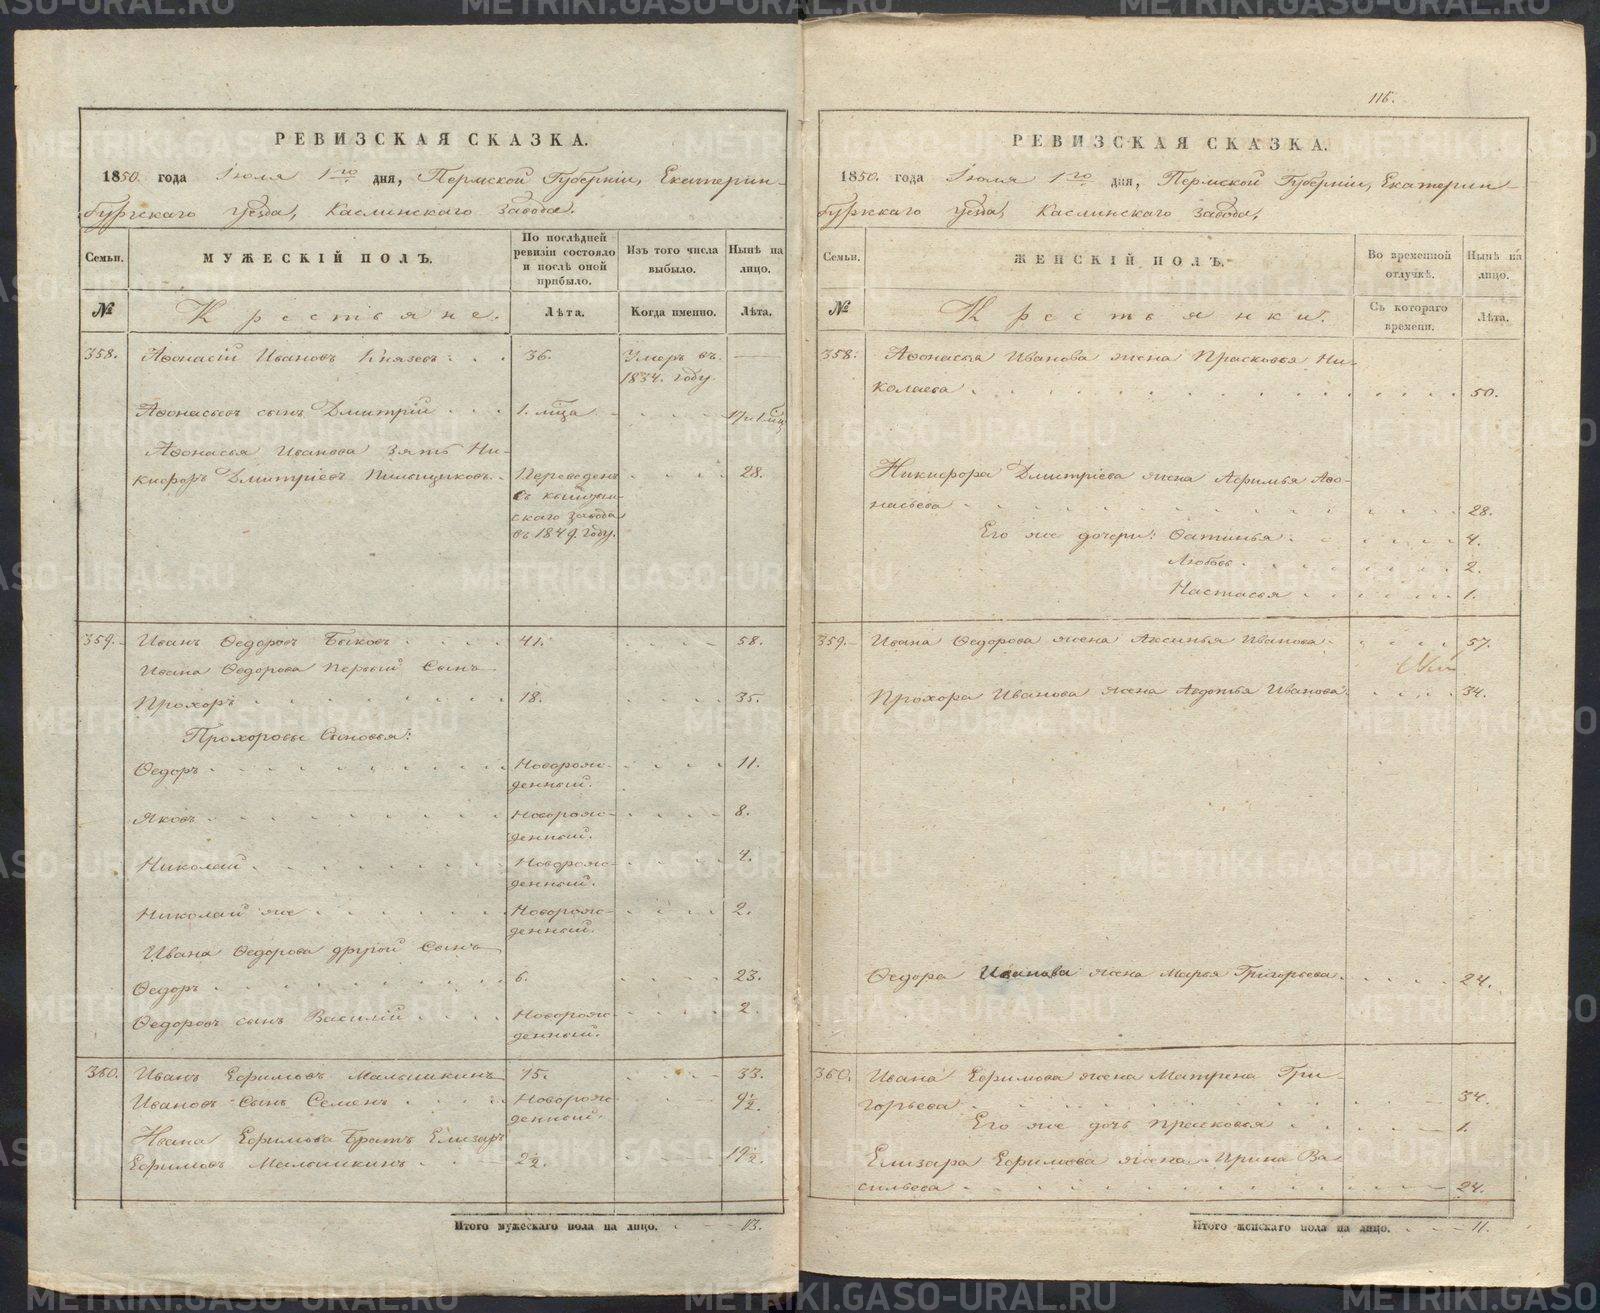 115.
РЕВИЗСКАЯ СКАЗКА.
1850. года Іюля 1го дня, Пермской Губерніи, Екатерин-
бургскаго Уѣзда, Каслинскаго Завода.
Семьи.
МУЖЕСКІЙ ПОЛЪ.
По послѣдней ревизіи состояло и послѣ оной прибыло.
Изъ того числа выбыло.
Нынѣ на лицо.
№
Крестьяне.
Лѣта.
Когда именно.
Лѣта.
358. Афонасій Ивановъ Князевъ . . . 36. Умеръ въ
1834. году.
Афонасьевъ сынъ Дмитрій . . . 1. мца 17 и 1 мцъ
Афонасья Иванова Зять Ни-
кифоръ Дмитріевъ Пильщиковъ . Переведенъ 28.
съ Кыштым-
скаго Завода
въ 1849. году.
359. Иванъ Ѳедоровъ Быковъ 41. 58.
Ивана Ѳедорова первый Сынъ
Прохоръ 18. 35.
Прохоровы Сыновья:
Ѳедоръ Новорож- 11.
денный.
Яковъ Новорож- 8.
денный.
Николай Новорож- 4.
денный.
Николай же Новорож- 2.
денный.
Ивана Ѳедорова другой Сынъ
Ѳедоръ 6. 23.
Ѳедоровъ сынъ Василій Новорож- 2.
денный.
360. Иванъ Ефимовъ Малышкинъ 15. 33.
Ивановъ Сынъ Семенъ Новорож- 9½.
денный.
Ивана Ефимова Братъ Елизаръ
Ефимовъ Малышкинъ 2½. 19½.
Итого мужескаго пола на лицо. 13.
РЕВИЗСКАЯ СКАЗКА.
1850. года Іюля 1го дня, Пермской Губерніи, Екатерин-
бургскаго Уѣзда, Каслинскаго Завода,
Семьи.
ЖЕНСКІЙ ПОЛЪ.
Во временной отлучкѣ.
Нынѣ на лицо.
№
Крестьянки.
Съ котораго времени.
Лѣта.
358. Афонасья Иванова жена Прасковья Ни-
колаева 50.
Никифора Дмитріева жена Афимья Афо-
насьева 28.
Его же дочери: Фатинья 4.
Любовь 2.
Настасья 1.
359. Ивана Ѳедорова жена Аксинья Иванова 57.
Прохора Иванова жена Авдотья Иванова 34.
Ѳедора Иванова жена Марья Григорьева 24.
360. Ивана Ефимова жена Матрена Гри-
горьева 34.
Его же дочь Прасковья 1.
Елизара Ефимова жена Ирина Ва-
сильева 24.
Итого женскаго пола на лицо. 11.
METRIKI.GASO-URAL.RU